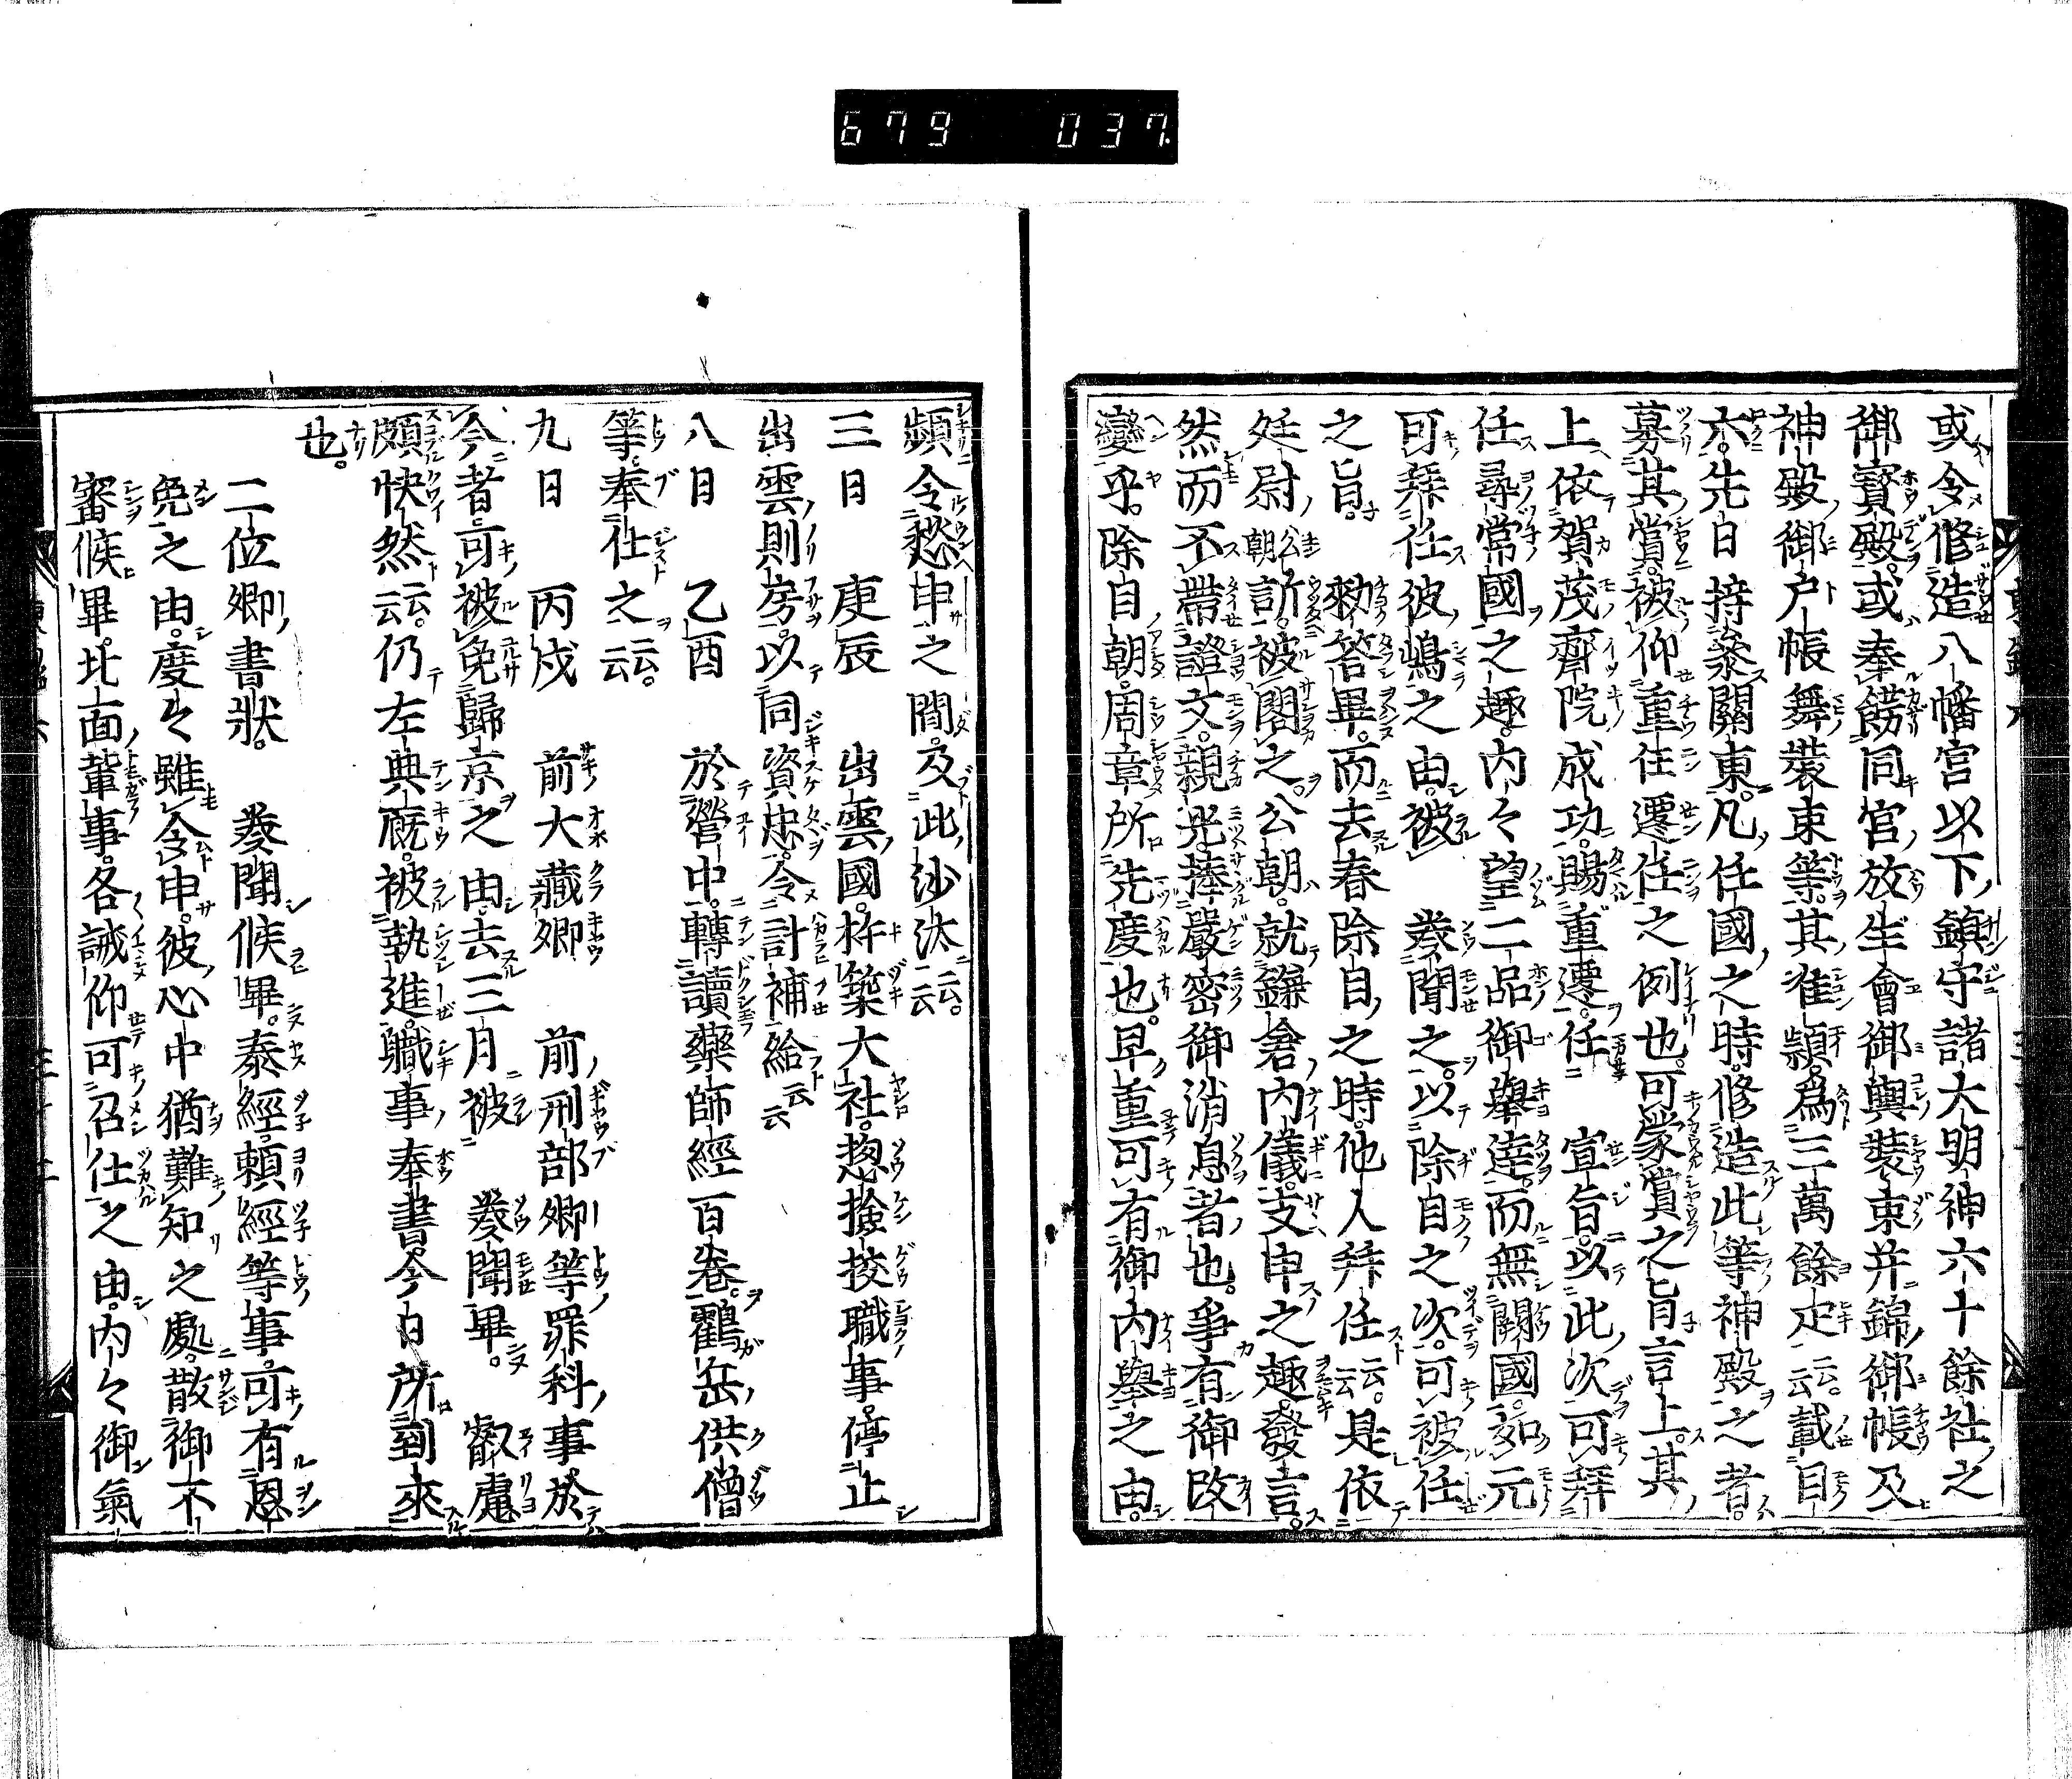 679 037
或令修造八幡宮以下鎮守諸大明神六十餘社之
御寳殿。或奉餝同宮放生會御輿裝束并錦御帳及
神殿御戸帳舞裝束等。其准頴爲三萬餘疋云云。載目
六。先日持參關東。凡任國之時。修造此等神殿之者。
募其賞。被仰重任遷任之例也。可蒙賞之旨言上。其
上依賀茂齊院成功。賜重遷。任 宣旨。以此次可拜
任尋常國之趣。内々望二品御擧達。而無闕國。如元
可拜任彼嶋之由。被 奏聞之。以除目之次。可被任
之旨。 勅答畢。而去春除目之時。他人拜任云云。是依
廷尉公朝訴。被閣之。公朝。就鎌倉内儀。支申之趣。發言。
然而不帶證文。親光捧嚴密御消息者也。爭有御改
變乎。除目朝。周章所先度也。早重可有御内擧之由。
頻令愁申之間。及此沙汰云云。
三日 庚辰 出雲國杵築大社。惣撿挍職事。停止
出雲則房。以同資忠。令計補給云云
八日 乙酉 於營中。轉讀藥師經百卷。鶴岳供僧
等奉仕之云云。
九日 丙戌 前大藏卿 前刑部卿等罪科事。於
今者可被免歸京之由。去三月被 奏聞畢。 叡慮
頗快然云云。仍左典厩。被執進。職事奉書今日所到來
也。
二位卿書狀。 奏聞候畢。泰經。頼經等事。可有恩
免之由。度々雖令申。彼心中猶難知之處。散御不
審候畢。北面輩事。各誡仰可召仕之由。内々御氣